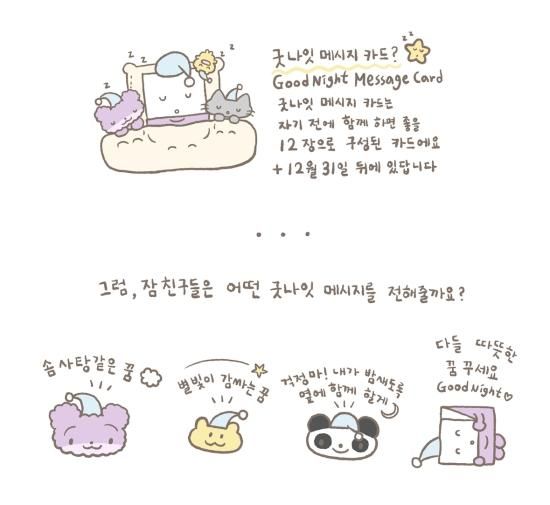 굿나잇 메시지 카드?
Good Night Message Card
굿나잇 메시지 카드는
자기 전에 함께 하면 좋을
12장으로 구성된 카드에요
+ 12월 31일 뒤에 있답니다
그럼, 잠친구들은 어떤 굿나잇 메시지를 전해줄까요?
솜사탕같은 꿈
별빛이 감싸는 꿈
걱정마! 내가 밤새도록
옆에 함께 할게
다들 따뜻한
꿈 꾸세요
Good Night♡
z z
z z
z
z z
z z